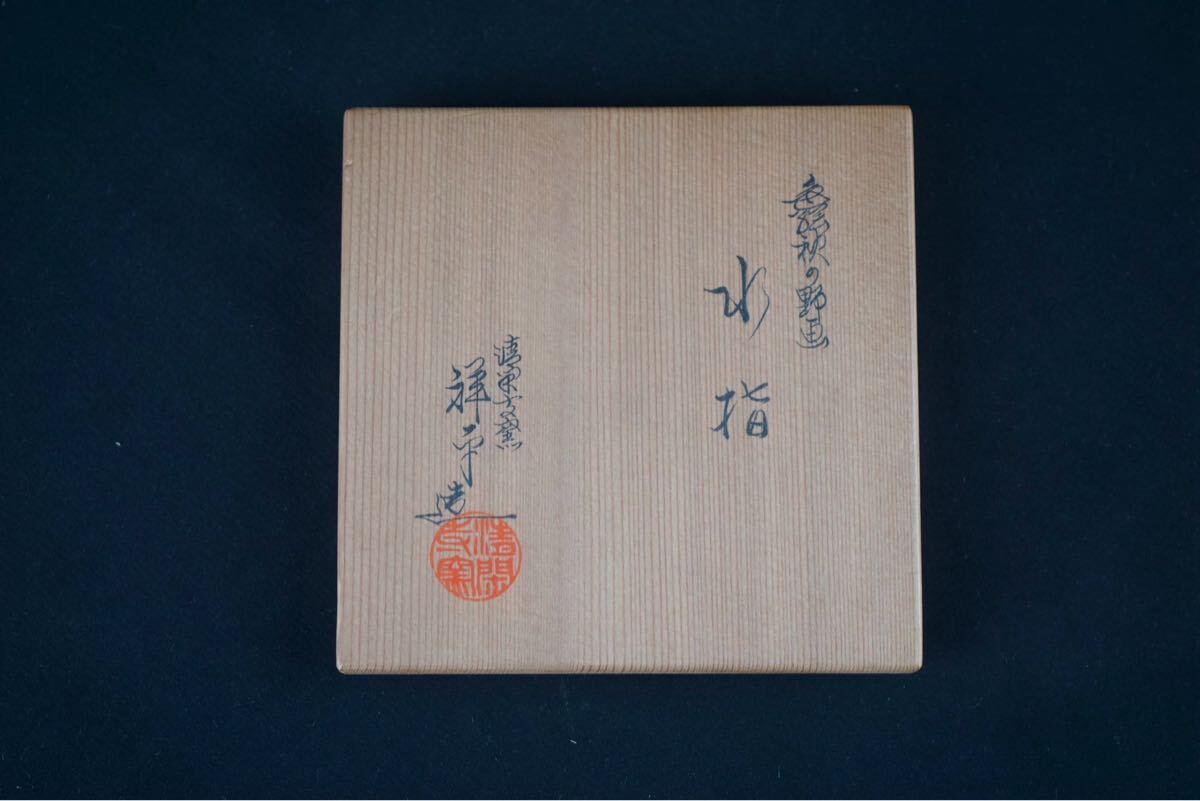 色絵秋の野画
水指
清閑寺窯
祥平造
清閑寺窯